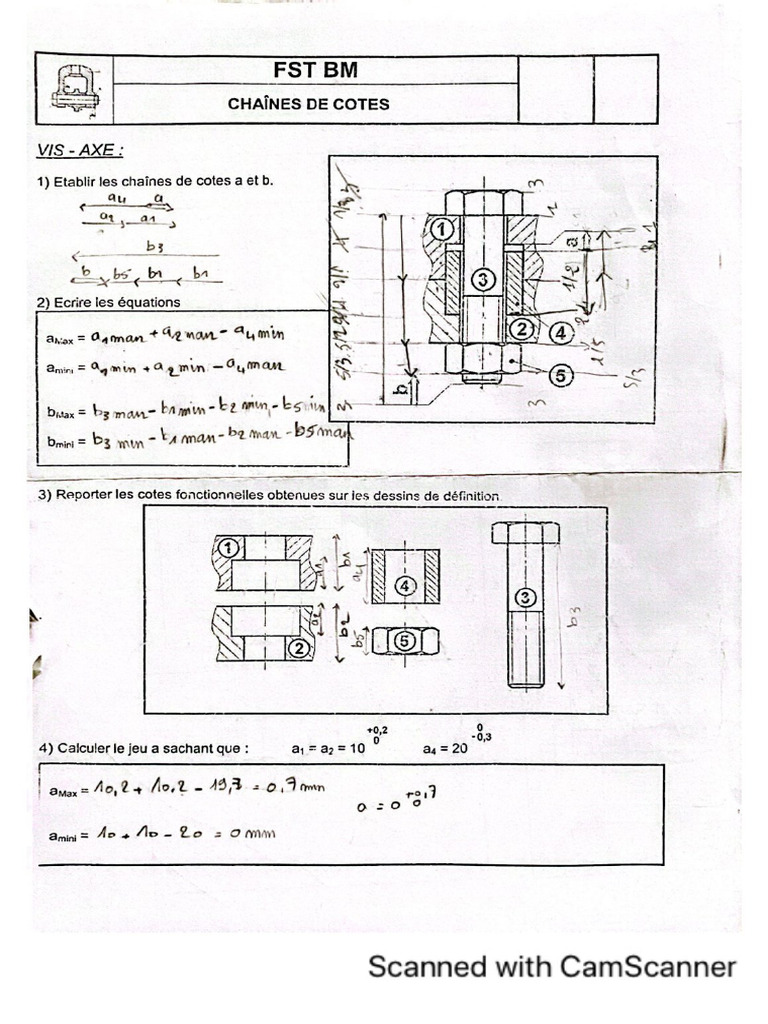 FST BM
CHAÎNES DE COTES
VIS - AXE :
1) Etablir les chaînes de cotes a et b.
a4 a
a2 a1
b3
b b5 b1 b1
2) Ecrire les équations
aMax = a1man + a2 man - a4 min
amini = a1min + a2 min - a4 man
bMax = b3 man - b1 min - b2 min - b5 min
bmini = b3 min - b1 man - b2 man - b5 man
1
3
2
4
5
a
b
1/2
1/5
5/3
3
3) Reporter les cotes fonctionnelles obtenues sur les dessins de définition
1
a1
b1
a4
4
3
b3
a2
b2
2
b5
5
4) Calculer le jeu a sachant que : a1 = a2 = 10 +0,2 0 a4 = 20 0 -0,3
aMax = 10,2 + 10.2 - 19,7 = 0,7 mm
a = 0 +0,7 0
amini = 10 + 10 - 20 = 0 mm
Scanned with CamScanner